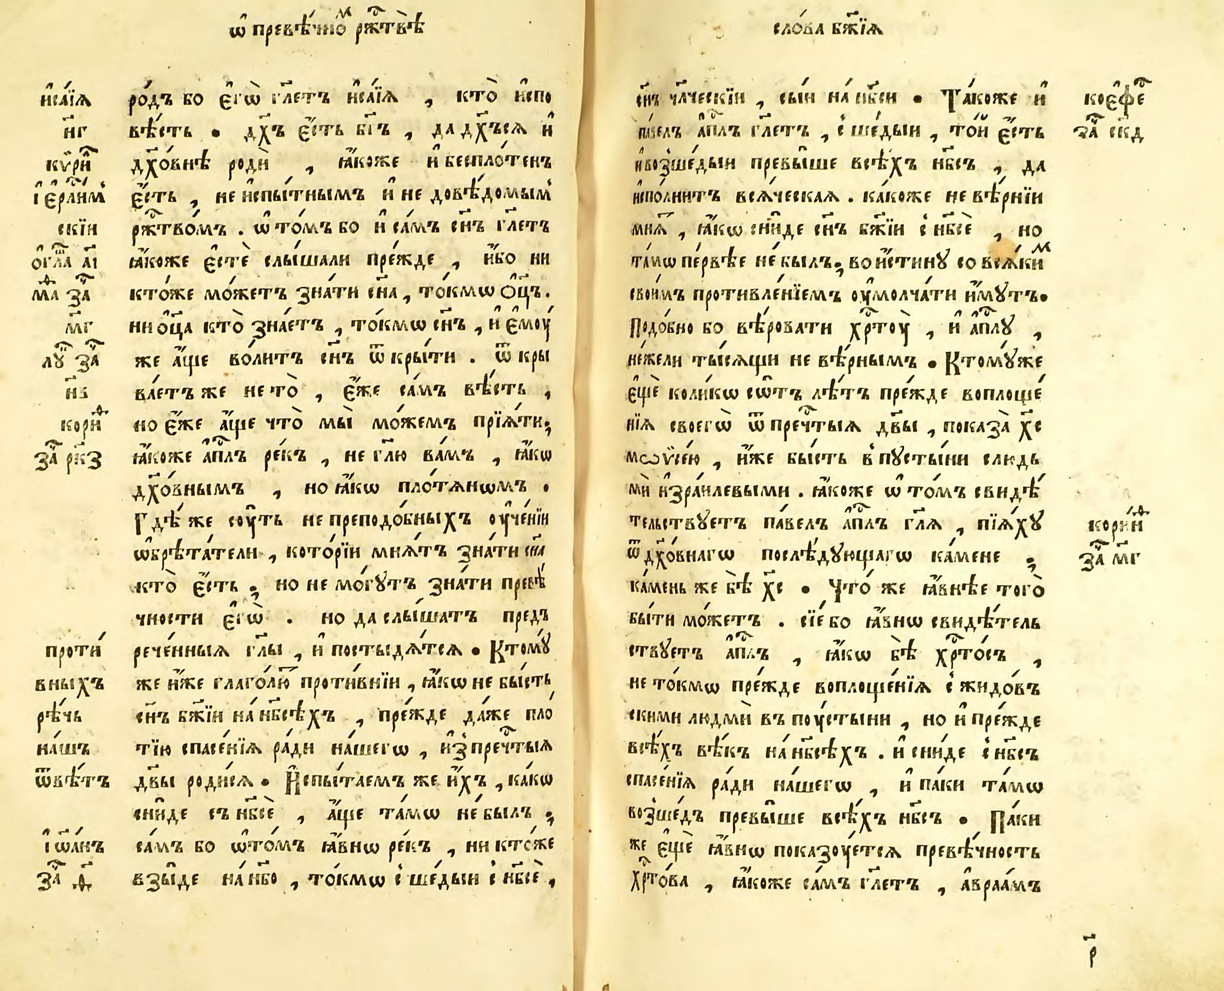 ѡ҆ превѣ́чноⷨ рж҇твѣ̀
и҆са́їѧ
н҃г
кѷри́лъ
і҆ єрлⷭ҇им
скїи
ѡ҆гл҃а а҃і
маⷴ҇ заⷱ҇
м҃г
лꙋⷦ҇ заⷱ҇
н҃в
кориⷴ҇
заⷱ҇ рк҃з
проти́
вныхъ
рѣ́чь
на́шъ
ѿвѣ́тъ
і҆ѡ҃а́нъ
заⷱ҇ ѳ҃
ро́дъ бо є҆гѡ̀ гл҃етъ и҆са́їѧ , кто̀ и҆спо
вѣ́сть . дх҃ъ є҆́сть бг҃ъ , да дх҃ъсѧ и҆
дх҃о́внѣ родѝ , ꙗ҆́коже и҆ бесплотенъ
є҆́сть , не и҆спы́тнымъ и҆ не довѣ́домымъ
рж҇тво́мъ . ѡ҆ то́мъ бо и҆ са́мъ сн҃ъ гл҃етъ
ꙗ҆́коже є҆стѐ слы́шали пре́жде , и҆́бо ни
кто́же мо́жетъ зна́ти сн҃а , то́кмѡ ѻ҆ц҃ъ .
ни ѻ҆ц҃а кто̀ зна́етъ , то́кмѡ сн҃ъ , и҆ є҆моу́
же а҆́ще во́литъ сн҃ъ ѿкры́ти . ѿкры
ва́етъ же не то̀ , є҆́же са́мъ вѣ́сть ,
но є҆́же а҆́ще что̀ мы̀ мо́жемъ прїѧ́ти ;
ꙗ҆́коже а҆пⷭ҇лъ ре́къ , не гл҃ю ва́мъ , ꙗ҆́кѡ
дх҃о́внымъ , но ꙗ҆́кѡ плотѧнымъ .
Гдѣ́ же соу́ть непреподо́бныхъ оу҆че́нїи
ѡ҆брѣта́тели , кото́рїи мнѧ́тъ зна́ти сн҃а
кто̀ є҆́сть ; но не мо́гутъ зна́ти превѣ́
чности є҆гѡ̀ . но да слы́шатъ пред̾
рече́нныѧ гл҃ы , и҆ постыдѧ́тсѧ . Ктомꙋ́
же и҆̀же глаго́лю проти́внїи , ꙗ҆́кѡ не бы́сть
сн҃ъ бж҃їи на нб҃сѣхъ , пре́жде да́же пло
тїю спасе́нїѧ ра́ди на́шегѡ , и҆з̾ преч҇тыѧ
дв҃ы роди́сѧ . И҆спыта́емъ же и҆́хъ , ка́кѡ
сни́де съ нб҃сѐ , а҆́ще та́мѡ не́ былъ ;
са́мъ бо ѡ҆ то́мъ ꙗ҆́внѡ ре́къ , никто́же
взы́де на нб҃о , то́кмѡ сше́дыи с нб҃сѐ ,
сло́ва бж҃їѧ
сн҃ъ чл҃ческїи , сы́и на нб҃си . Та́коже и҆
па́велъ а҆пⷭ҇лъ гл҃етъ , сше́дыи , то́и є҆́сть
и҆ возше́дыи превы́ше всѣ́хъ нб҃съ , да
и҆спо́лнитъ всѧ́ческаѧ . ка́коже невѣ́рнїи
мнѧ́тъ , ꙗ҆́кѡ сни́де сн҃ъ бж҃їи с нб҃сѐ , но
та́мѡ пе́рвѣе не́ былъ ; во и҆́стинꙋ со всѧ́киⷨ
свои́мъ противле́нїемъ оу҆молча́ти и҆́мꙋтъ .
Подо́бно бо вѣ́ровати хрⷭ҇тоу̀ , и҆ а҆пⷭ҇лꙋ ,
не́жели ты́сѧщи невѣ́рнымъ . Ктомꙋ́же
є҆щѐ коли́кѡ сѡ́тъ лѣ́тъ пре́жде воплоще́
нїѧ своегѡ̀ ѿ преч҇тыѧ дв҃ы , показа́ хс҃
мѡѷсе́ю , и҆́же бы́сть в̾пꙋсты́ни с людь
мѝ и҆зра́илевыми . ꙗ҆́коже ѡ҆ то́мъ свидѣ́
тельствꙋетъ па́велъ а҆пⷭ҇лъ гл҃ѧ , пїѧ́хꙋ
ѿ дх҃о́внагѡ послѣ́дꙋющагѡ ка́мене ;
ка́мень же бѣ̀ хс҃ . Что́ же ꙗ҆́внѣе того̀
бы́ти мо́жетъ . сїѐ бо ꙗ҆́внѡ свидѣ́тель
ствꙋетъ а҆пⷭ҇лъ , ꙗ҆́кѡ бѣ̀ хрⷭ҇то́съ ,
не то́кмѡ пре́жде воплоще́нїѧ с жидо́въ
скими людмѝ въ поусты́ни , но и҆ пре́жде
всѣ́хъ вѣ́къ на нб҃сѣхъ . и҆ сни́де с нб҃съ
спасе́нїѧ ра́ди на́шегѡ , и҆ па́ки та́мѡ
возше́дъ превы́ше всѣ́хъ нб҃съ . Па́ки
же є҆щѐ ꙗ҆́внѡ показоу́етсѧ превѣ́чность
хрⷭ҇то́ва , ꙗ҆́коже са́мъ гл҃етъ , а҆враа́мъ
ко є҆феⷭ҇
заⷱ҇ скд
кориⷴ҇
заⷱ҇ мг
р҃